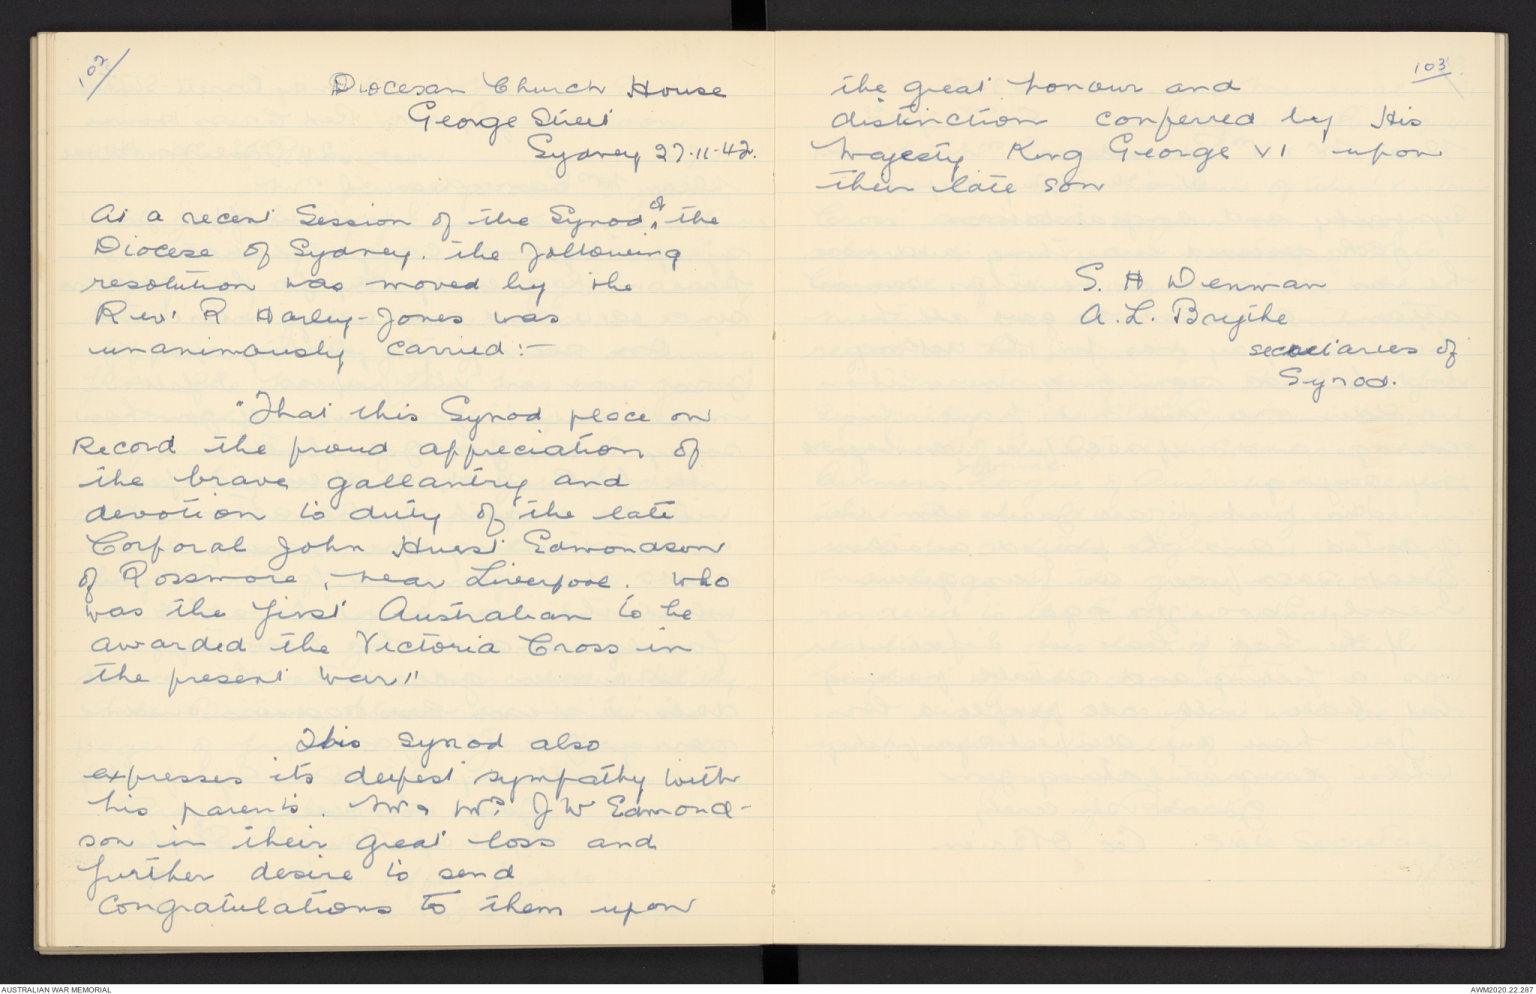 102/
Diocesan Church House
George Street
Sydney 27.11.42.
At a recent Session of the Synod of the
Diocese of Sydney. the following
resolution was moved by the
Rev. R Harley-Jones was
unanimously carried:-
"That this Synod place on
Record the proud appreciation of
the brave gallantry and
devotion to duty of the late
Corporal John Hurst Edmondson
of Rossmore, near Liverpool. who
was the first Australian to be
awarded the Victoria Cross in
the present War"
This Synod also
expresses its deepest sympathy with
his parents. Mr & Mrs J W Edmond-
son in their great loss and
further desire to send
Congratulations to them upon
103
the great honour and
distinction conferred by His
Majesty King George VI upon
their late son
S. H Denman
A. L. Brythe
secretaries of
Synod.
AUSTRALIAN WAR MEMORIAL
AWM2020.22.287